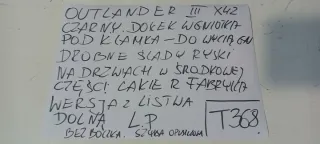 OUTLANDER III X42
CZARNY. DOŁEK WGNIOTKA
POD KLAMKA - DO WYCIĄGN
DROBNE SLADY RYSKI
NA DRZWACH W ŚRODKOWEJ
CZĘŚCI LAKIER FABRYKA
WERSJA Z LISTWA
DOLNA L.P
BEZ BOCZKA. SZYBA ORGINALNA
T368